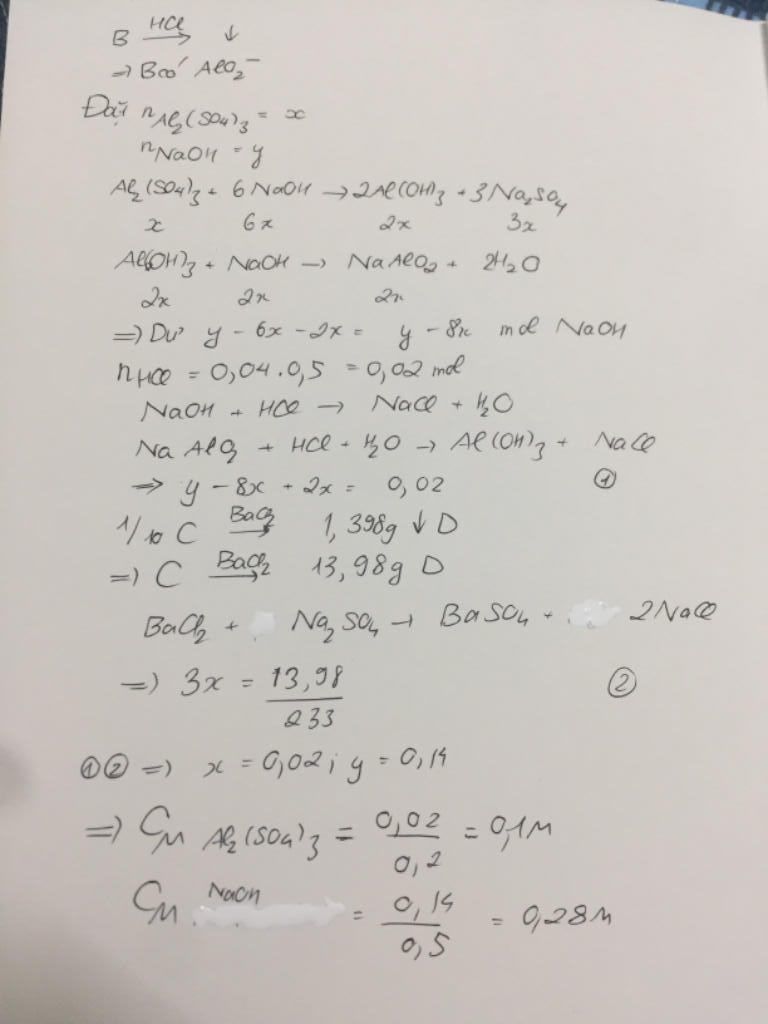 B HCl→ ↓
⇒ B có AlO₂⁻
Đặt nAl₂(SO₄)₃ = x
nNaOH = y
Al₂(SO₄)₃ + 6NaOH → 2Al(OH)₃ + 3Na₂SO₄
x 6x 2x 3x
Al(OH)₃ + NaOH → NaAlO₂ + 2H₂O
2x 2x 2x
⇒ Dư y - 6x - 2x = y - 8x mol NaOH
nHCl = 0,04.0,5 = 0,02 mol
NaOH + HCl → NaCl + H₂O
NaAlO₂ + HCl + H₂O → Al(OH)₃ + NaCl
⇒ y - 8x + 2x = 0,02 ①
1/10 C BaCl₂→ 1,398g ↓ D
⇒ C BaCl₂→ 13,98g D
BaCl₂ + Na₂SO₄ → BaSO₄ + 2NaCl
⇒ 3x = 13,98/233 ②
①② ⇒ x = 0,02; y = 0,14
⇒ CM Al₂(SO₄)₃ = 0,02/0,2 = 0,1M
CM NaOH = 0,14/0,5 = 0,28M